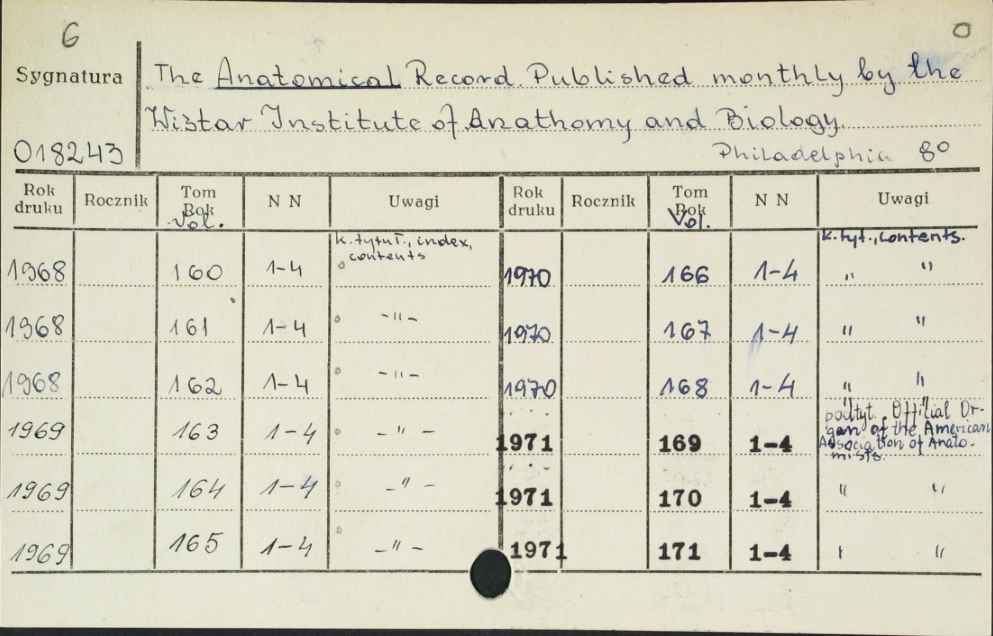 6 0
Sygnatura The Anatomical Record. Published monthly by the
Wistar Institute of Anathomy and Biology.
018243 Philadelphia 8º
Rok druku Rocznik Tom Rok Vol. N N Uwagi Rok druku Rocznik Tom Rok Vol. N N Uwagi
k. tytuł., index, contents k. tyt., contents.
1968 160 1-4 1970 166 1-4 " "
1968 161 1-4 -"- 1970 167 1-4 " "
1968 162 1-4 -"- 1970 168 1-4 " "
podtyt. Offilial Or-
gan of the American
Association of Anato-
mists.
1969 163 1-4 -"- 1971 169 1-4
1969 164 1-4 -"- 1971 170 1-4 " "
1969 165 1-4 -"- 1971 171 1-4 " "